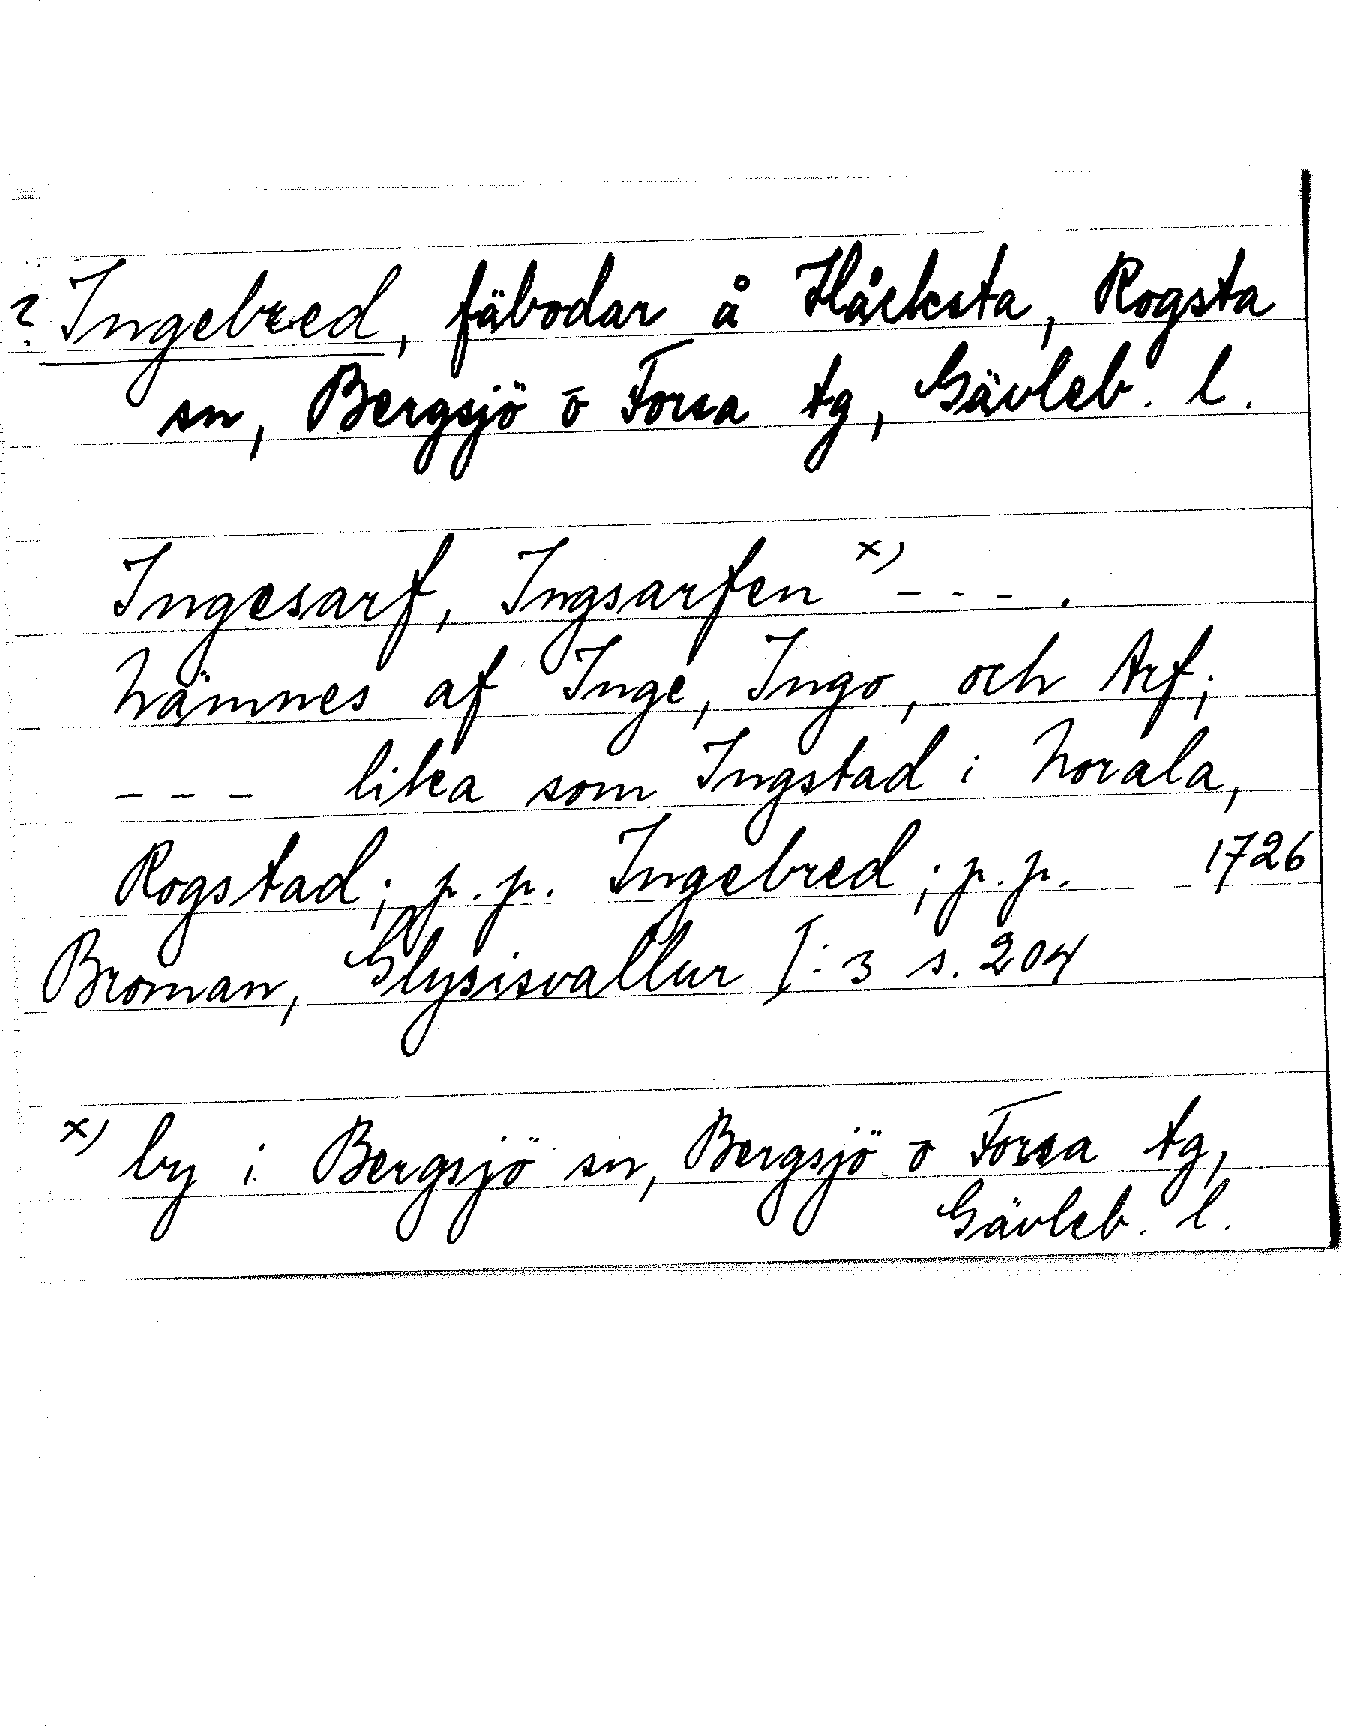 ? Ingebred, fäbodar å Håcksta, Rogsta
sn, Bergsjö o Forsa tg, Gävleb. l.
Ingesarf, Ingsarfen x) - - - .
Nämnes af Inge, Ingo, och Arf;
- - - lika som Ingstad i Norala,
Rogstad; p. p. Ingebred; p. p. 1726
Broman, Glysisvallur I: 3 s. 204
x) by i Bergsjö sn, Bergsjö o Forsa tg,
Gävleb. l.